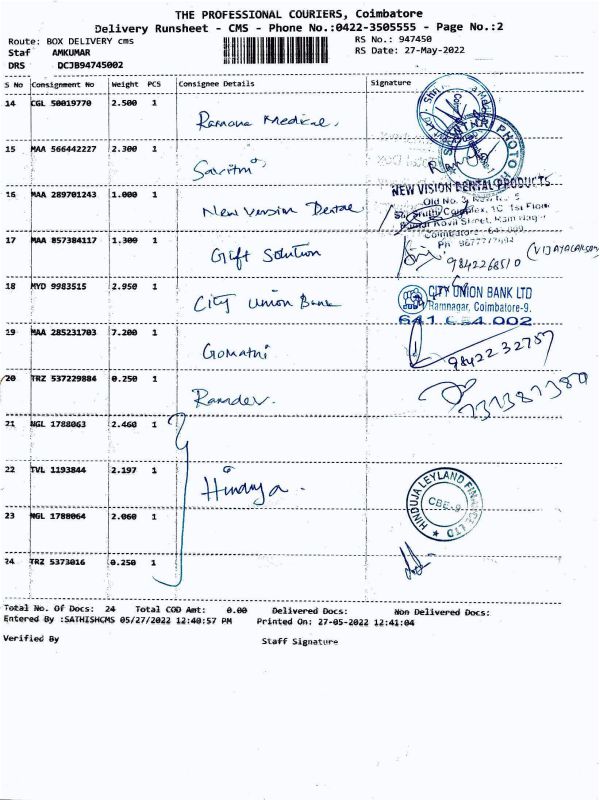 THE PROFESSIONAL COURIERS, Coimbatore
Delivery Runsheet - CMS - Phone No.:0422-3505555 - Page No.:2
Route: BOX DELIVERY cms RS No.: 947450
Staf AMKUMAR RS Date: 27-May-2022
DRS DCJB94745002
S No Consignment No Weight PCS Consignee Details Signature
14 CGL 50019770 2.500 1 Ramana Medical.
15 MAA 566442227 2.300 1 Savitri
PHOTO
16 MAA 289701243 1.000 1 New Version Dental
NEW VISION DENTAL PRODUCTS
Old No. 3, New No. 5
Sri Sruthi Complex, 1C 1st Floor
Kovil Street, Ram Nagar
Coimbatore - 641 009
17 MAA 857384117 1.300 1 Gift Solution
9842268510 (VIJAYALAKSHMI)
18 MYD 9983515 2.950 1 City Union Bank
CITY UNION BANK LTD
Ramnagar, Coimbatore-9.
19 MAA 285231703 7.200 1 Gomathi
98422 32757
20 TRZ 537229884 0.250 1 Ramdev.
21 NGL 1788063 2.460 1
22 TVL 1193844 2.197 1 Hinduja.
HINDUJA LEYLAND FINANCE LTD
CBE-9
23 NGL 1788064 2.060 1
24 TRZ 5373016 0.250 1
Total No. Of Docs: 24 Total COD Amt: 0.00 Delivered Docs: Non Delivered Docs:
Entered By :SATHISHCMS 05/27/2022 12:40:57 PM Printed On: 27-05-2022 12:41:04
Verified By Staff Signature